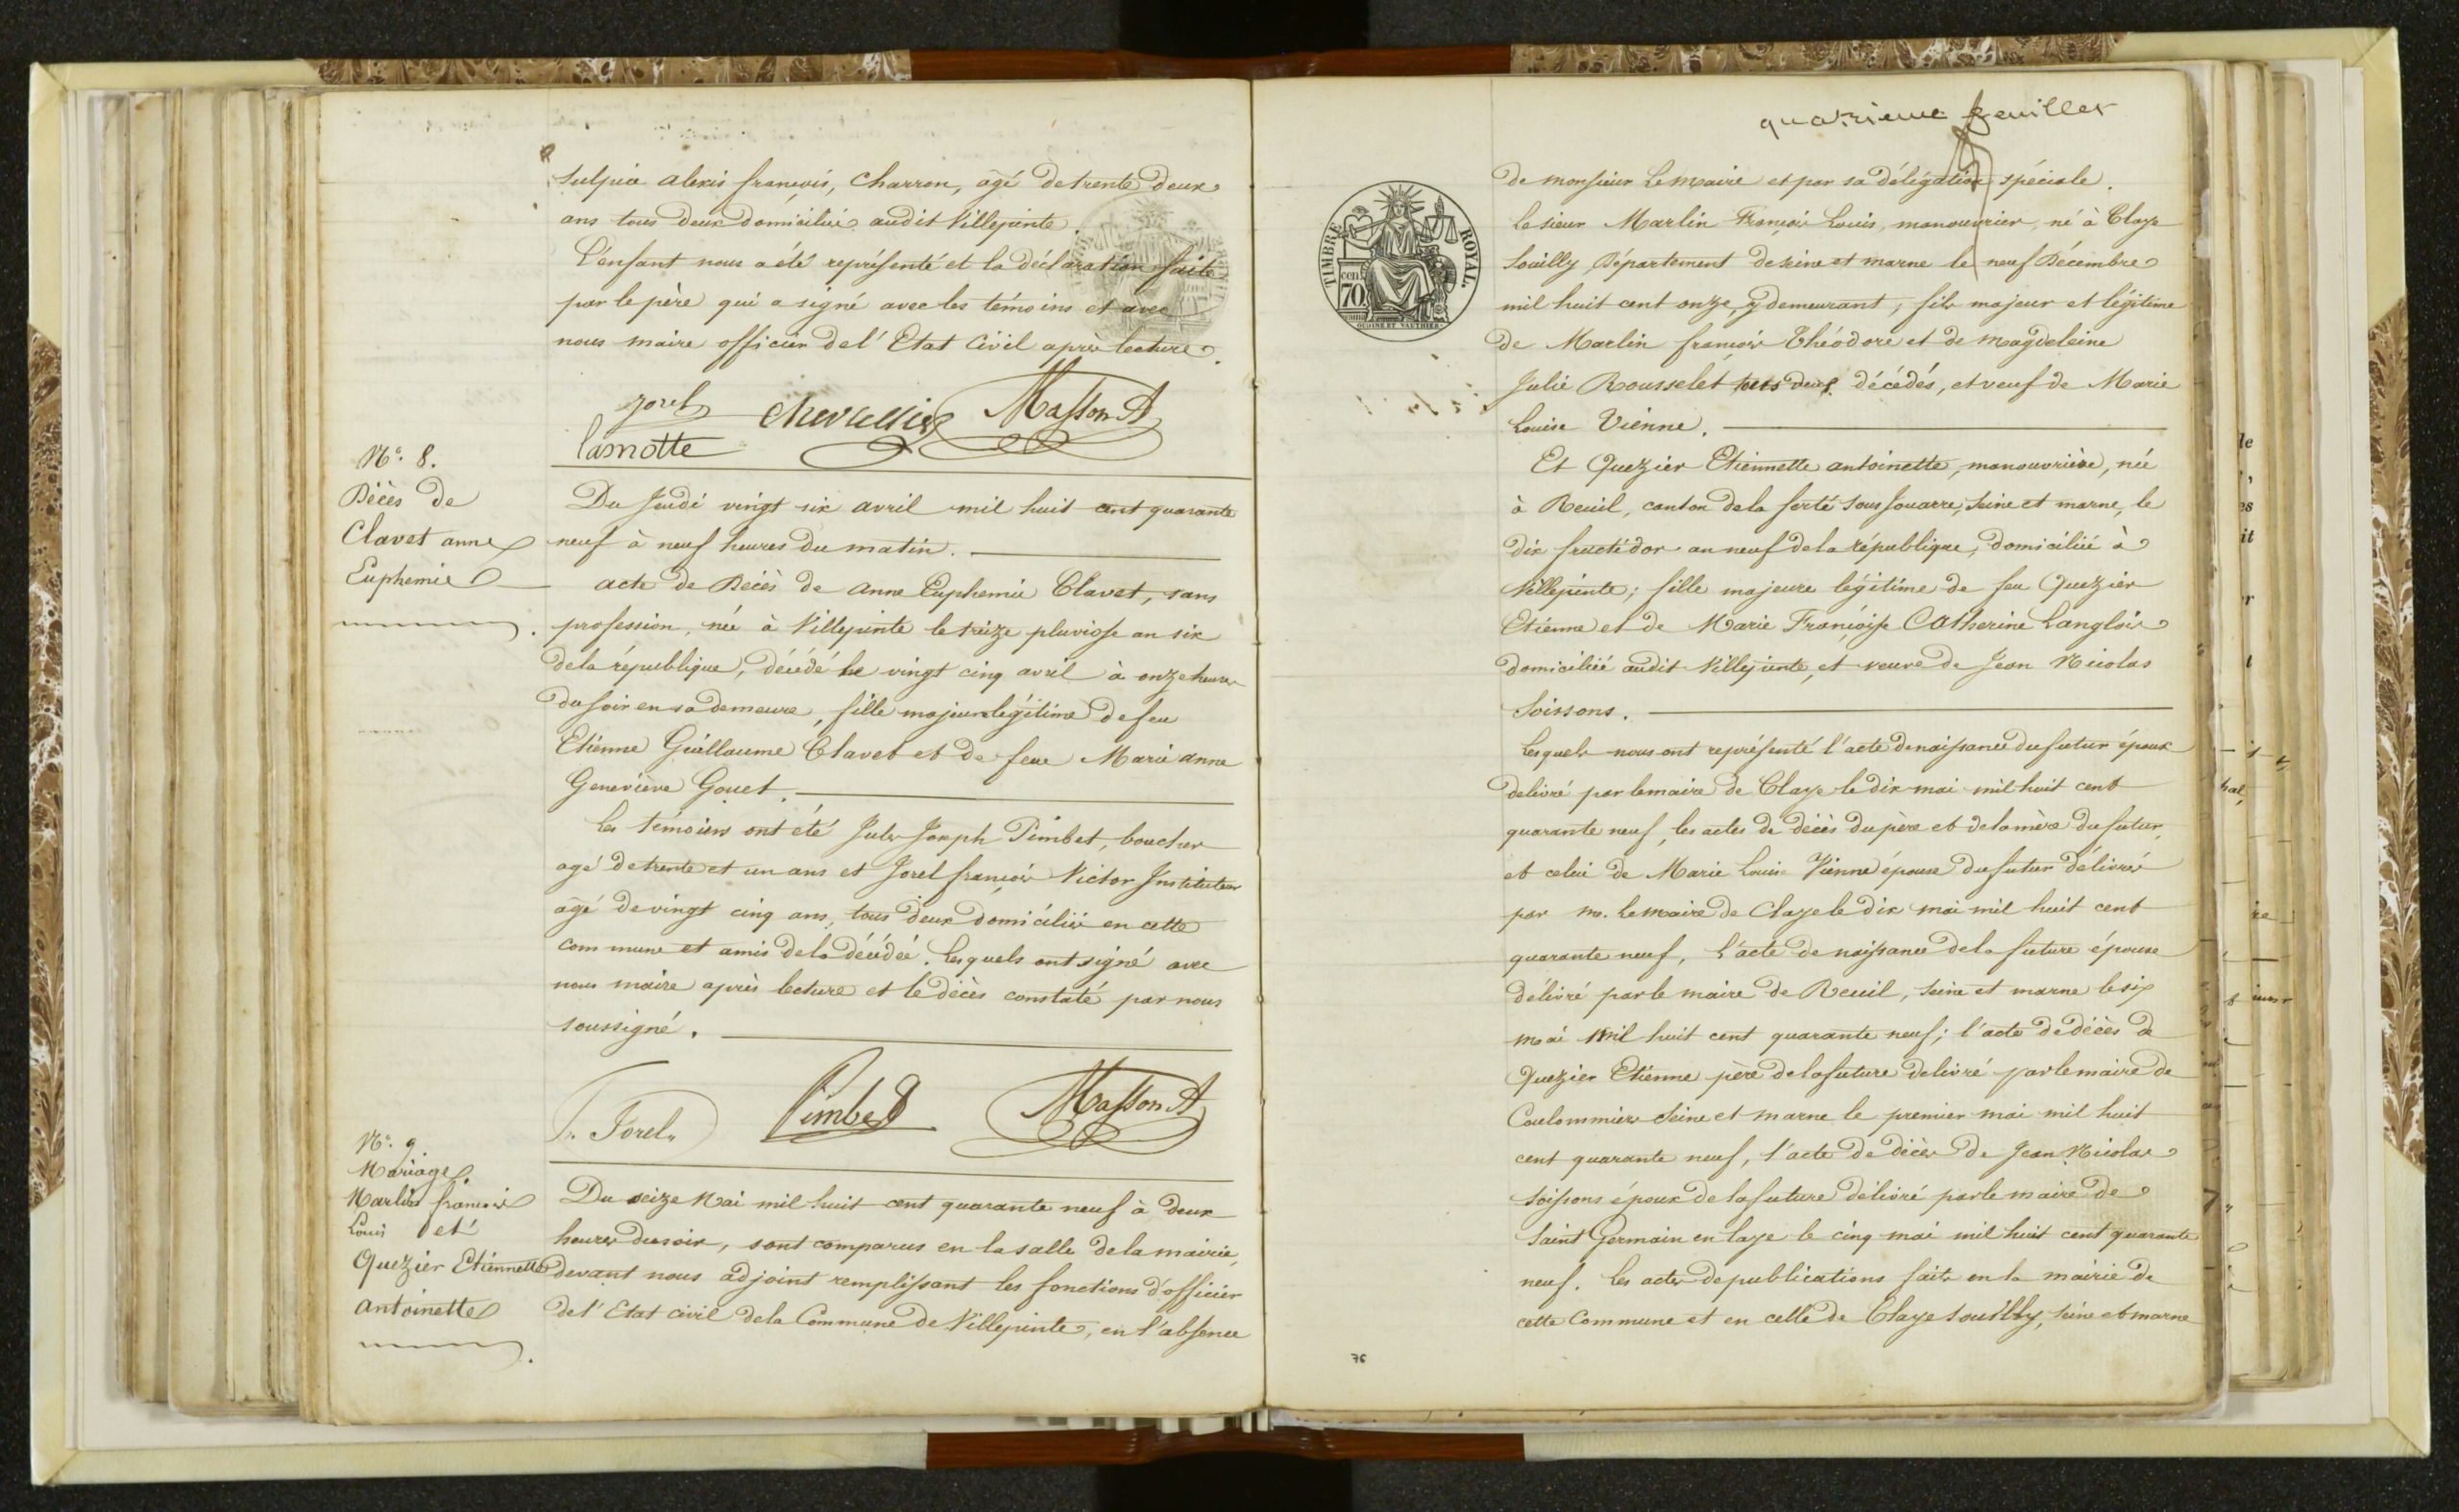 Sulpice alexis françois, Charron, âgé de trente deux
ans tous deux domiciliés audit Villepinte.
L'enfant nous a été représenté et la déclaration faite
par le père qui a signé avec les témoins et avec
nous maire officier de l'Etat Civil après lecture.
Jorel Chevallier Masson A
lamotte
N.° 8.
Décès de
Clavet anne
Euphemie
Du Jeudi vingt six avril mil huit cent quarante
neuf à neuf heures du matin.
acte de Décès de anne Euphemie Clavet, sans
profession, née à Villepinte le treize pluviose an six
de la république, décédé le vingt cinq avril à onze heures
du soir en sa demeure, fille majeure légitime de feu
Etienne Guillaume Clavet et de feue Marie anne
Geneviève Gouet.
Les témoins ont été Jules Joseph Pimbet, boucher
agé de trente et un ans et Jorel françois Victor Instituteur
âgé de vingt cinq ans, tous deux domiciliés en cette
commune et amis de la décédée. Lesquels ont signé avec
nous maire après lecture et le décès constaté par nous
soussigné.
Jorel Pimbet Masson A
N.° 9.
Mariage
Marlin françois
Louis et
Quezier Etiennette
antoinette
Du seize Mai mil huit cent quarante neuf à deux
heures du soir, sont comparus en la salle de la mairie,
devant nous adjoint remplissant les fonctions d'officier
de l'Etat civil de la Commune de Villepinte, en l'absence
quatrieme feuillet
TIMBRE ROYAL
cen 70
de monsieur Le maire et par sa délégation spéciale.
le sieur Marlin François Louis, manouvrier, né à Claye
Souilly Département de seine et marne le neuf Décembre
mil huit cent onze, y demeurant, fils majeur et légitime
de Marlin françois Théodore et de magdeleine
Julie Rousselet tous deux décédés, et veuf de Marie
Louise Vienne.
Et Quezier Etiennette antoinette, manouvrière, née
à Reuil, canton de la ferté sous Jouarre, seine et marne, le
dix fructidor an neuf de la république, domiciliée à
Villepinte; fille majeure légitime de feu Quezier
Etienne et de Marie Françoise Catherine Langlois
domiciliée audit Villepinte, et veuve de Jean Nicolas
Soissons.
Lesquels nous ont représenté l'acte de naissance du futur époux
delivré par le maire de Claye le dix mai mil huit cent
quarante neuf, les actes de décès du père et de la mère du futur,
et celui de Marie Louise Vienne épouse du futur délivrés
par m. Le maire de Claye le dix mai mil huit cent
quarante neuf, l'acte de naissance de la future épouse
délivré par le maire de Reuil, seine et marne le six
mai mil huit cent quarante neuf; l'acte de décès de
Quezier Etienne père de la future delivré par le maire de
Coulommiers seine et marne le premier mai mil huit
cent quarante neuf, l'acte de décès de Jean Nicolas
Soissons époux de la future délivré par le maire de
Saint Germain en laye le cinq mai mil huit cent quarante
neuf. les actes de publications faits en la mairie de
cette Commune et en celle de Claye Souilly, seine et marne
76